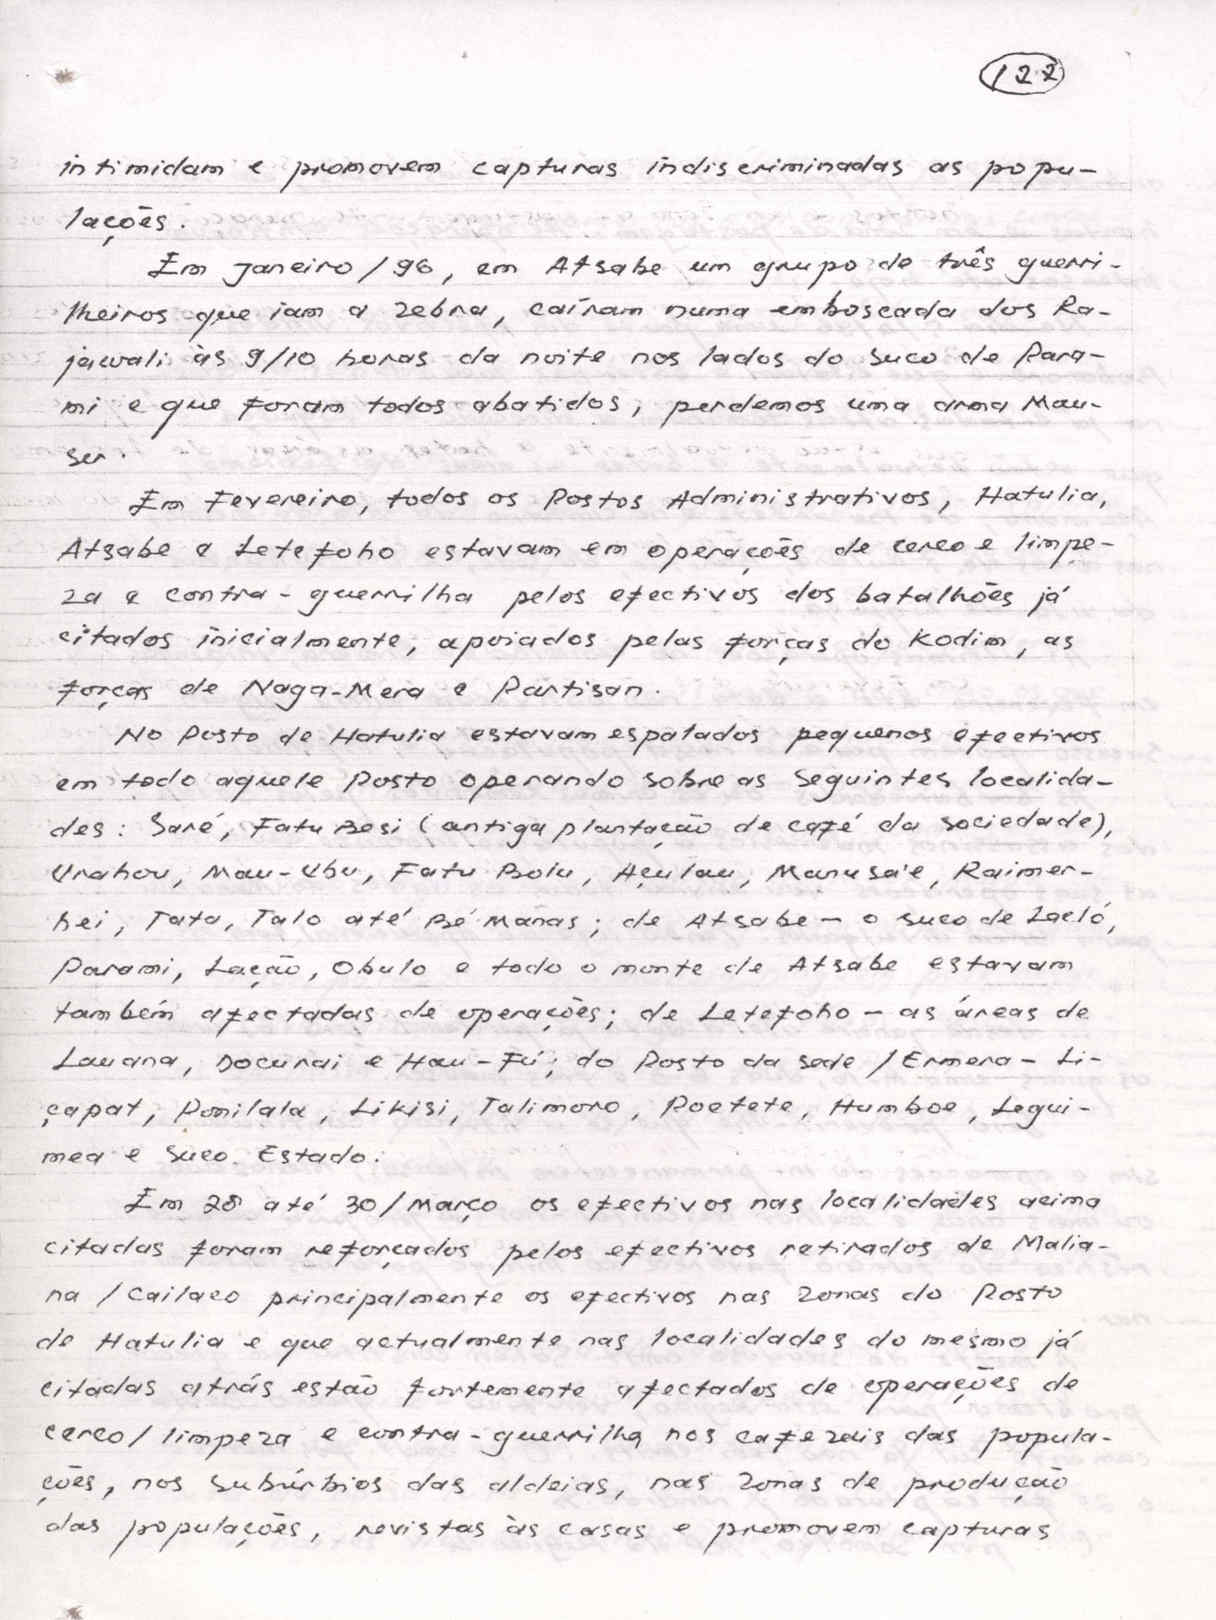 122
intimidam e promovem capturas indiscriminadas as popu-
lações.
Em Janeiro/96, em Atsabe um grupo de três guerri-
lheiros que iam a zebra, caíram numa emboscada dos Ra-
jawali às 9/10 horas da noite nos lados do suco de Para-
mi e que foram todos abatidos, perdemos uma arma Mau-
ser.
Em Fevereiro, todos os Postos Administrativos, Hatulia,
Atsabe e Letefoho estavam em operações de cerco e limpe-
za e contra-guerrilha pelos efectivos dos batalhões já
citados inicialmente, apoiados pelas forças do Kodim, as
forças de Naga-Mera e Partisan.
No Posto de Hatulia estavam espalados pequenos efectivos
em todo aquele Posto operando sobre as seguintes localida-
des: Saré, Fatu Besi (antiga plantação de café da sociedade),
Urahou, Mau-Ubu, Fatu Bolu, Açulau, Manusa'e, Raimer-
hei, Tata, Talo até Bé Mañas; de Atsabe - o suco de Laeló,
Parami, Lação, Obulo e todo o monte de Atsabe estavam
também afectadas de operações; de Letefoho - as áreas de
Lauana, Docurai e Hau-Fú; do Posto da sede/Ermera - Li-
çapat, Ponilala, Likisi, Talimoro, Poetete, Humboe, Legui-
mea e Suco Estado.
Em 28 até 30/Março os efectivos nas localidades acima
citadas foram reforçados pelos efectivos retirados de Malia-
na/Cailaco principalmente os efectivos nas zonas do Posto
de Hatulia e que actualmente nas localidades do mesmo já
citadas atrás estão fortemente afectados de operações de
cerco/limpeza e contra-guerrilha nos cafezais das popula-
ções, nos subúrbios das aldeias, nas zonas de produção
das populações, revistas às casas e promovem capturas